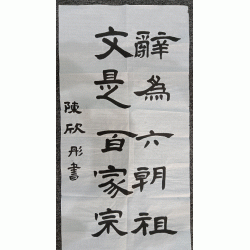 辭為六朝祖
文是百家宗
陳欣彤書